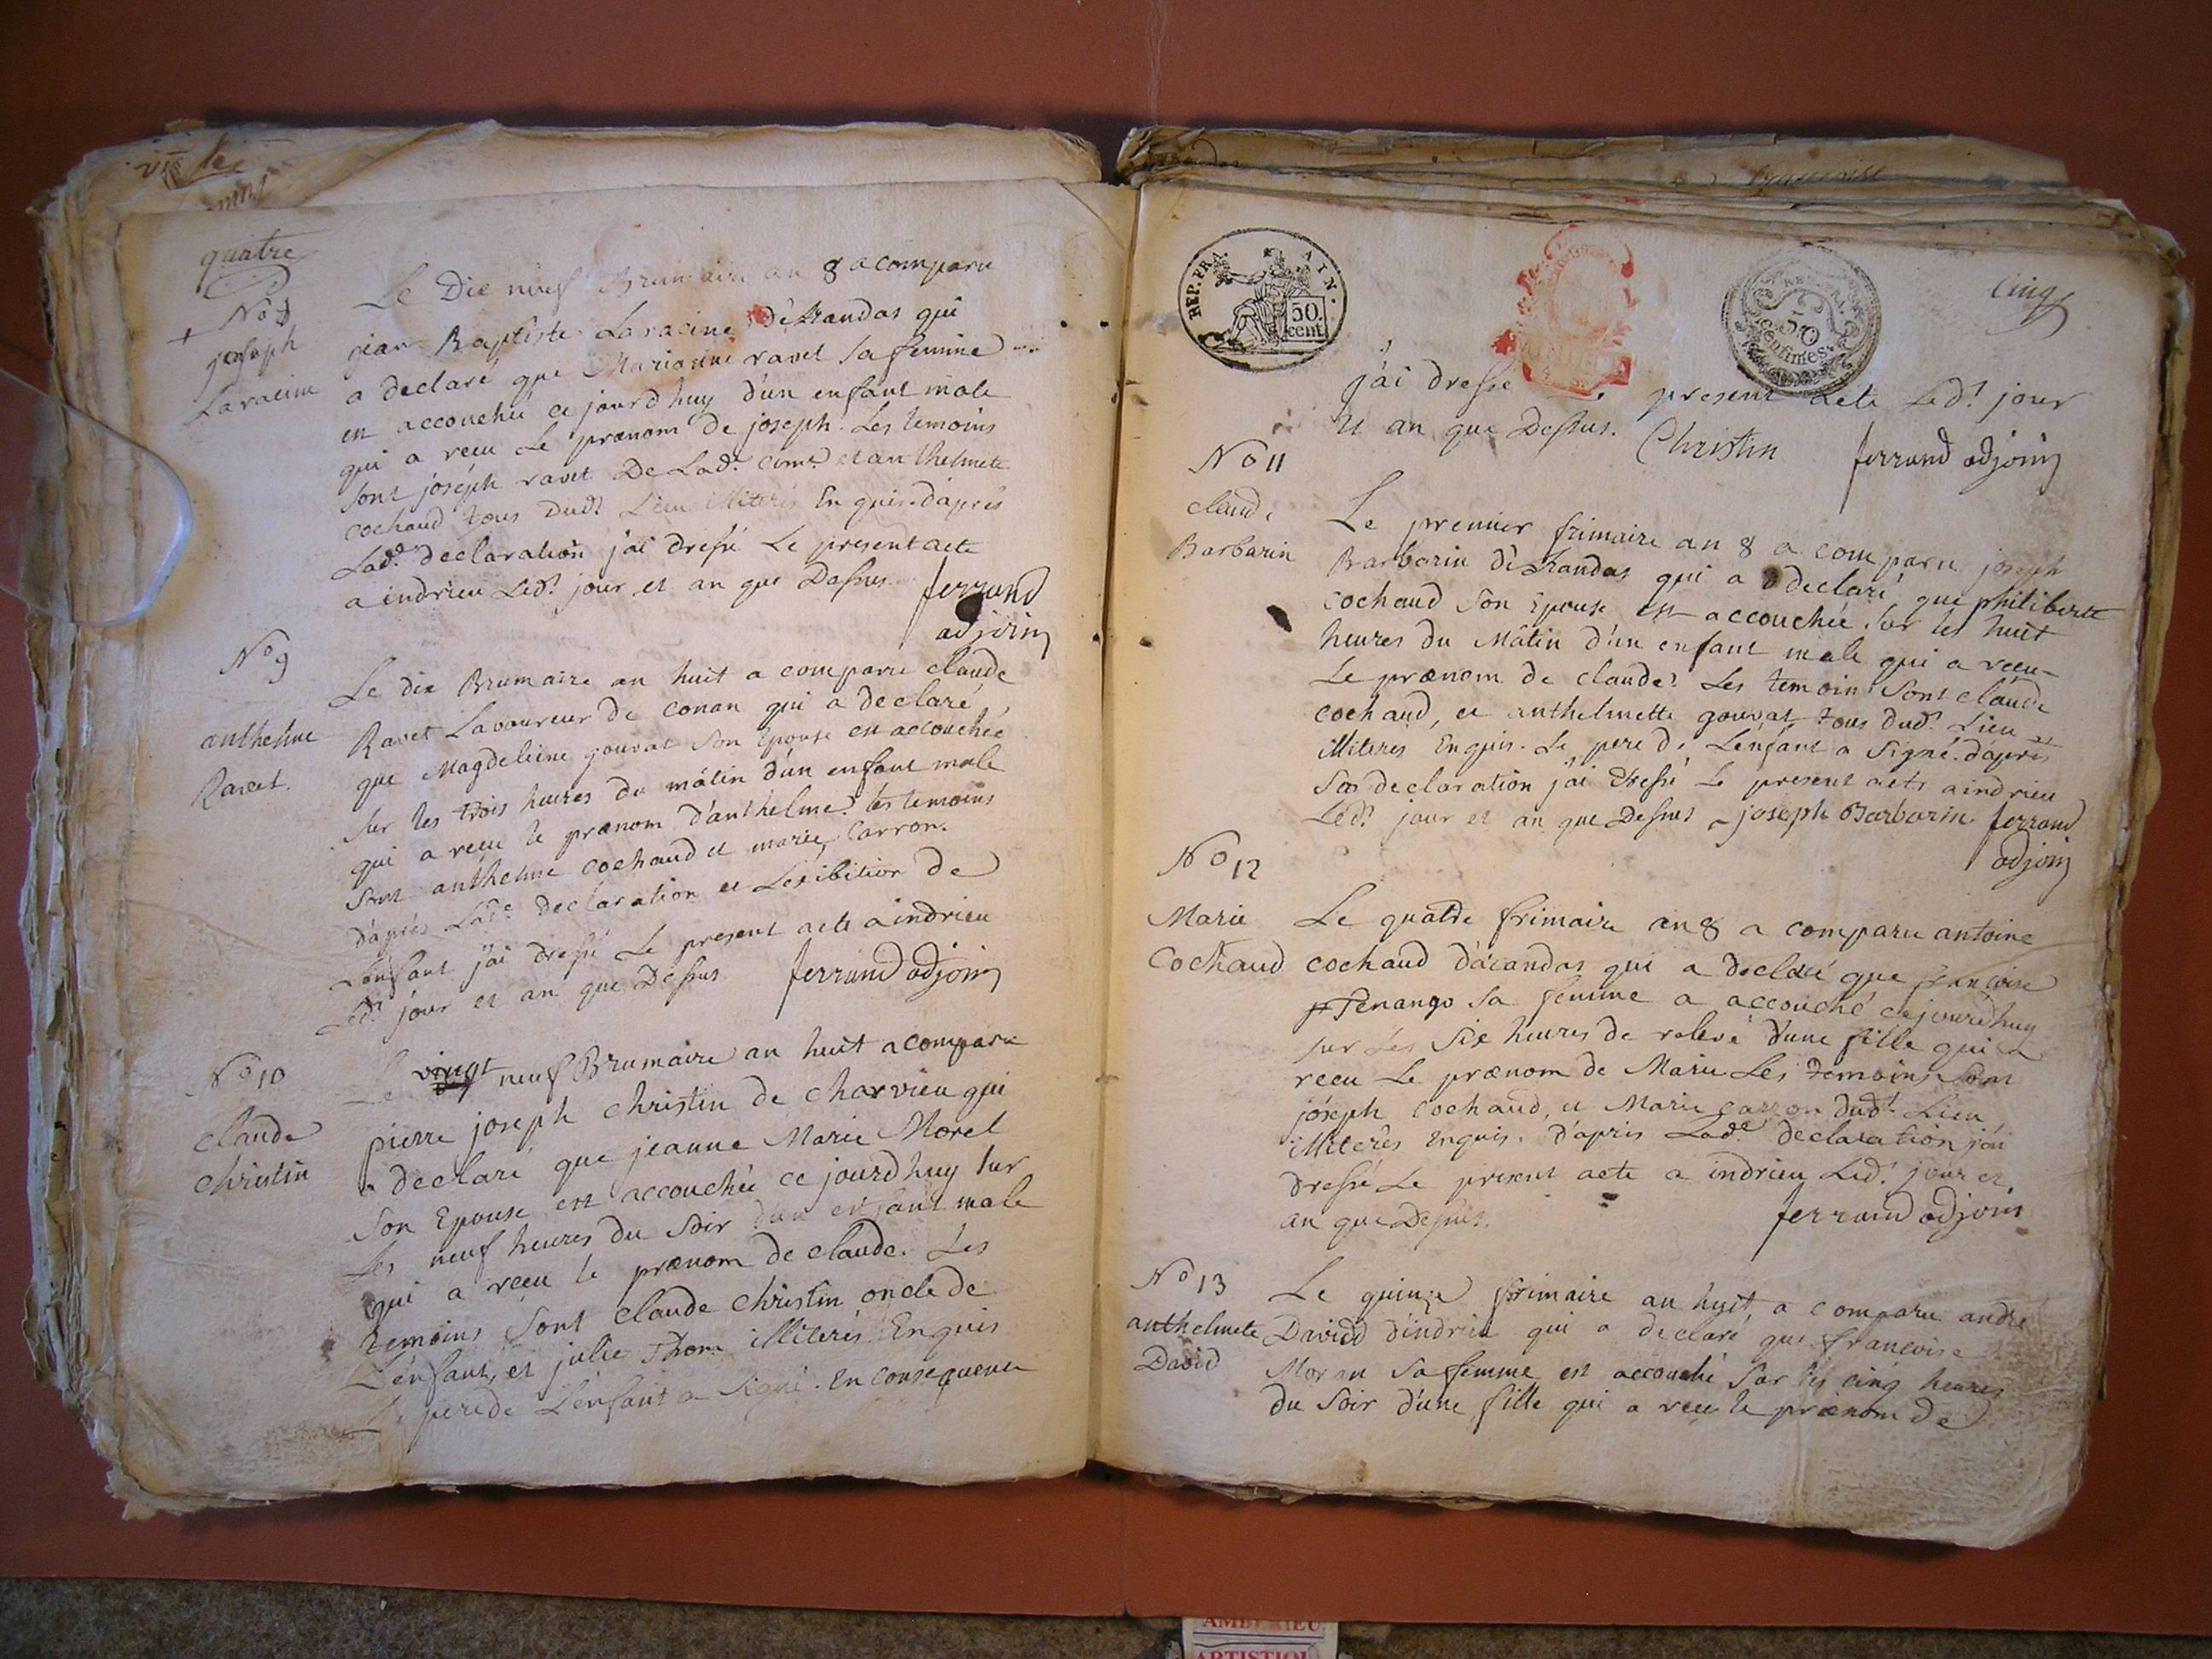 quatre
No 8
joseph
Laracine
Le Dix neuf Brumaire an 8 a comparu
jean Baptiste Laracine d'étrandas qui
a declaré que Marianne ravet sa femme
est accouchée ce jourd'huy d'un enfant male
qui a recu Le prænom de joseph. Les temoins
sont joseph ravet De Lad.e com.e et anthelmete
cochaud tous dud.t Lieu illiterés Enquis. d'après
Lad.e declaration j'ai dressé Le present acte
a indrieu Led.t jour et an que Dessus. ferrand
adjoint
No 9
anthelme
Ravet.
Le dix Brumaire an huit a comparu claude
Ravet Laboureur de conan qui a declaré
que Magdeleine gouvat Son Epouse est accouchée
Sur les trois heures du mâtin d'un enfant male
qui a recu le prænom d'anthelme. les temoins
sont anthelme cochaud et marie Carron.
d'après Lad.e declaration et Lexibition de
L'enfant j'ai dressé Le present acte a indrieu
Led.t jour et an que Dessus ferrand adjoint
No 10
Claude
christin
Le vingt neuf Brumaire an huit a comparu
pierre joseph christin de charvieu qui
a declaré que jeanne Marie Morel
Son Epouse est accouchée ce jourd'huy sur
Les neuf heures du Soir d'un enfant male
qui a recu le prænom de claude. Les
temoins Sont claude christin oncle de
L'énfant, et julie Thom illiterés Enquis
Le pere de L'enfant a Signé. En consequence
cinq
REP. FRA.
AIN.
50
cent.
REP. FRA.
50
centimes
j'ai dressé present acte Led.t jour
et an que Dessus. Christin ferrand adjoint
No 11
claude
Barbarin
Le premier frimaire an 8 a comparu joseph
Barbarin d'étrandas qui a declaré que philiberte
cochaud Son Epouse est accouchée Sur les huit
heures du Mâtin d'un enfant male qui a recu
Le prænom de claude. Les temoins Sont claude
cochaud, et anthelmette gouvat tous dud.t Lieu
illiterés Enquis. Le pere de L'enfant a Signé. d'après
Sa declaration j'ai dressé Le present acte a indrieu
Led.t jour et an que Dessus joseph Barbarin ferrand
adjoint
No 12
Marie
Cochaud
Le quatre frimaire an 8 a comparu antoine
cochaud d'acandas qui a declaré que francoise
Penango sa femme a accouché cejourd'huy
sur Les Six heures de relevé d'une fille qui a
recu Le prænom de Marie Les temoins Sont
joseph cochaud, et Marie carron dud.t Lieu
illiterés Enquis. d'après Lad.e declaration j'ai
dressé Le present acte a indrieu Led.t jour et
an que Dessus. ferrand adjoint
No 13
anthelmete
David
Le quinze frimaire an huit a comparu andre
David d'indrieu qui a declaré que francoise
Moran Sa femme est accouché Sur les cinq heures
du Soir d'une fille qui a recu le prænom de